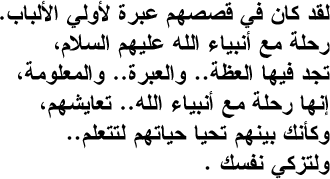 لقد كان في قصصهم عبرة لأولي الألباب.
رحلة مع أنبياء الله عليهم السلام،
تجد فيها العظة.. والعبرة.. والمعلومة،
إنها رحلة مع أنبياء الله.. تعايشهم،
وكأنك بينهم تحيا حياتهم لتتعلم..
ولتزكي نفسك .